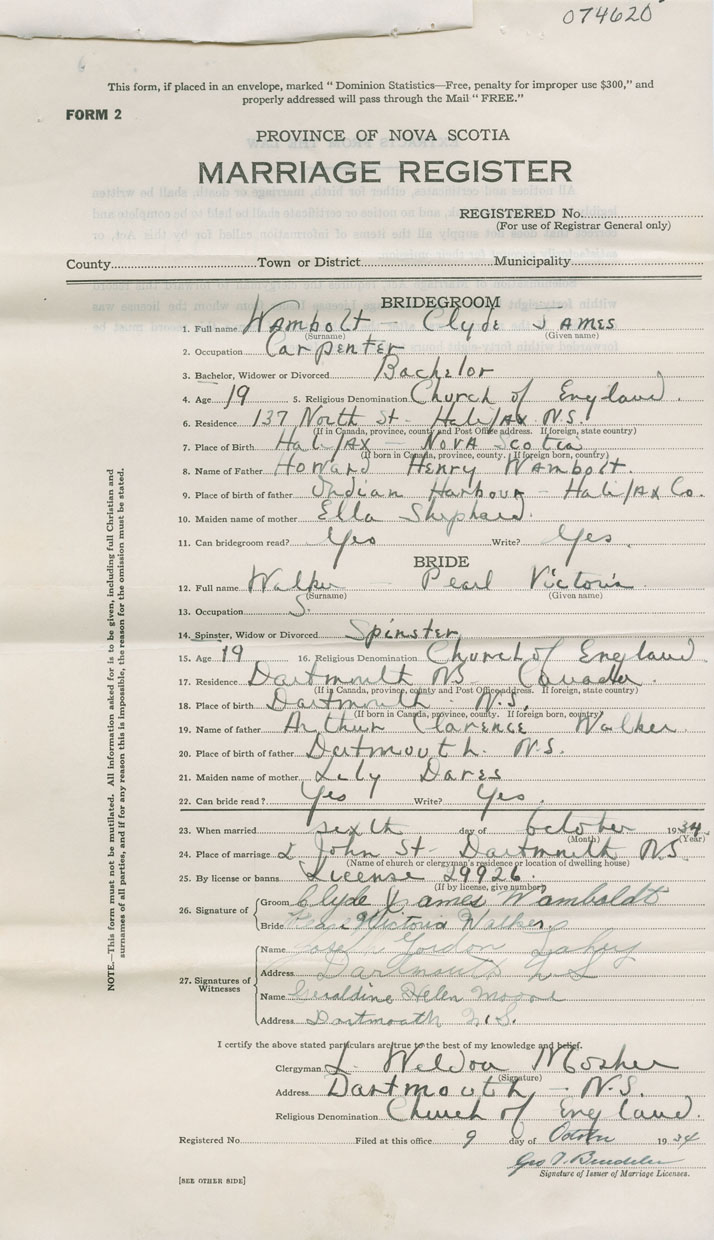 074620
This form, if placed in an envelope, marked " Dominion Statistics—Free, penalty for improper use $300," and
properly addressed will pass through the Mail " FREE."
FORM 2
PROVINCE OF NOVA SCOTIA
MARRIAGE REGISTER
REGISTERED No.
(For use of Registrar General only)
County Town or District Municipality
BRIDEGROOM
1. Full name Wambolt - Clyde James
(Surname) (Given name)
2. Occupation Carpenter
3. Bachelor, Widower or Divorced Bachelor
4. Age 19 5. Religious Denomination Church of England.
6. Residence 137 North St - Halifax N.S.
(If in Canada, province, county and Post Office address. If foreign, state country)
7. Place of Birth Halifax - Nova Scotia
(If born in Canada, province, county. If foreign born, country)
8. Name of Father Howard Henry Wambolt.
9. Place of birth of father Indian Harbour - Halifax Co.
10. Maiden name of mother Ella Shephard.
11. Can bridegroom read? Yes Write? Yes.
BRIDE
12. Full name Walker - Pearl Victoria
(Surname) (Given name)
13. Occupation S.
14. Spinster, Widow or Divorced Spinster
15. Age 19 16. Religious Denomination Church of England
17. Residence Dartmouth NS - Canada.
(If in Canada, province, county and Post Office address. If foreign, state country)
18. Place of birth Dartmouth - N.S.
(If born in Canada, province, county. If foreign born, country)
19. Name of father Arthur Clarence Walker.
20. Place of birth of father Dartmouth. N.S.
21. Maiden name of mother Lily Dares
22. Can bride read? Yes Write? Yes.
23. When married sexth day of October 1934.
(Month) (Year)
24. Place of marriage 2 John St - Dartmouth NS
(Name of church or clergyman's residence or location of dwelling house)
25. By license or banns License 29926.
(If by license, give number)
26. Signature of
Groom Clyde James Wamboldt
Bride Pearl Victoria Walker.
27. Signatures of Witnesses
Name Joseph Gordon
Address Dartmouth N S
Name Geraldine Helen
Address Dartmouth N.S.
I certify the above stated particulars are true to the best of my knowledge and belief.
Clergyman L. Weldon Mosher
(Signature)
Address Dartmouth - N.S.
Religious Denomination Church of England.
Registered No. Filed at this office 9 day of October 1934
Geo
Signature of Issuer of Marriage Licenses.
[SEE OTHER SIDE]
NOTE.—This form must not be mutilated. All information asked for is to be given, including full Christian and
surnames of all parties, and if for any reason this is impossible, the reason for the omission must be stated.